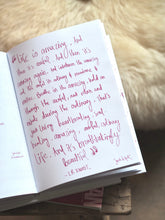 "Life is amazing, but
then it's awful, but then it's
amazing again. And between the amazing
and the awful it's ordinary & mundane &
routine. Breathe in the amazing, hold on
through the awful, and relax and
exhale during the ordinary. That's
just living heartbreaking, soul
healing, amazing, awful, ordinary
life. And it's breathtakingly
beautiful"
- L.R. KNOST